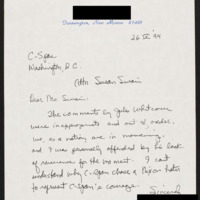 Farmington, New Mexico 87401
26 IV 94
C-Span
Washington, D.C.
Attn: Susan Swain
Dear Ms. Swain:
The comments by Jules Whitcover
were inappropriate and out of order.
We, as a nation, are in mourning,
and I was personally offended by his lack
of reverence for the moment. I can't
understand why C-Span chose a Nixon hater
to represent C-Span's coverage.
Sincerely